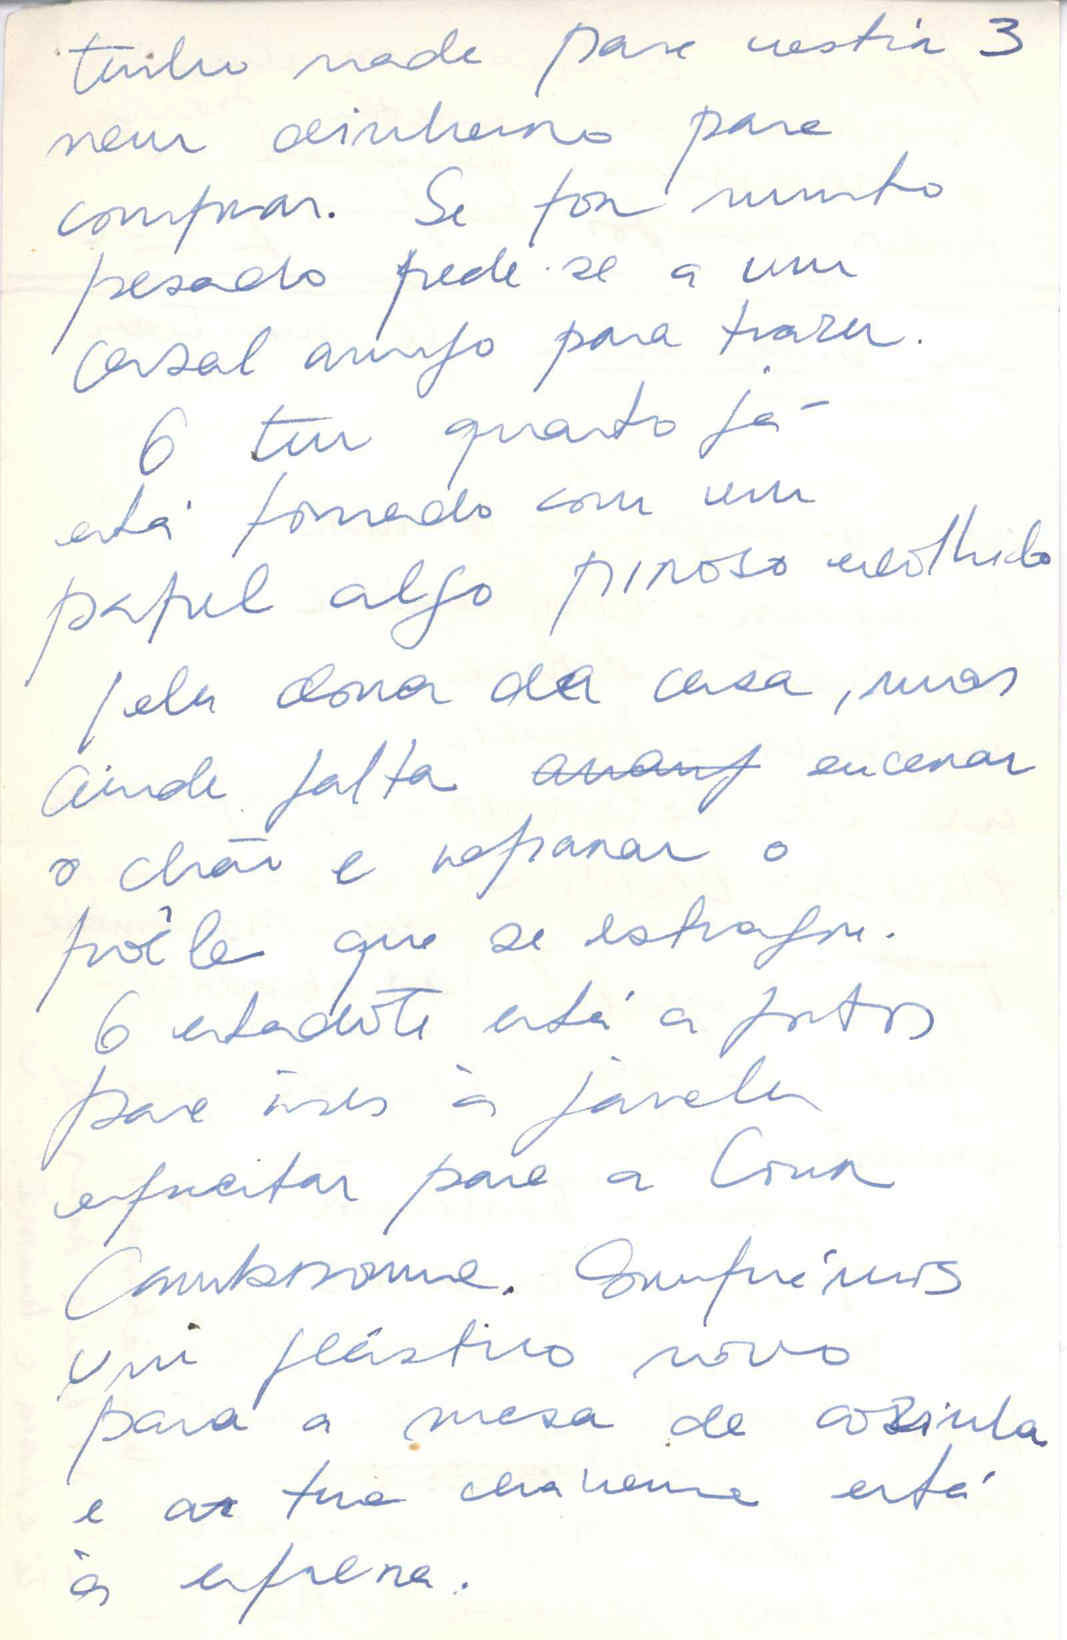 tenho nada para vestir 3
nem dinheiro para
comprar. Se for muito
pesado pede-se a um
casal amigo para trazer.
O teu quarto já
está forrado com um
papel algo piroso escolhido
pela dona da casa, mas
ainda falta encerar
o chão e reparar o
poêle que se estragou.
O escadote está a postos
para ires à janela
espreitar para a Cour
Cambronne. Comprámos
um plástico novo
para a mesa de cozinha
e a tua chávena está
à espera.